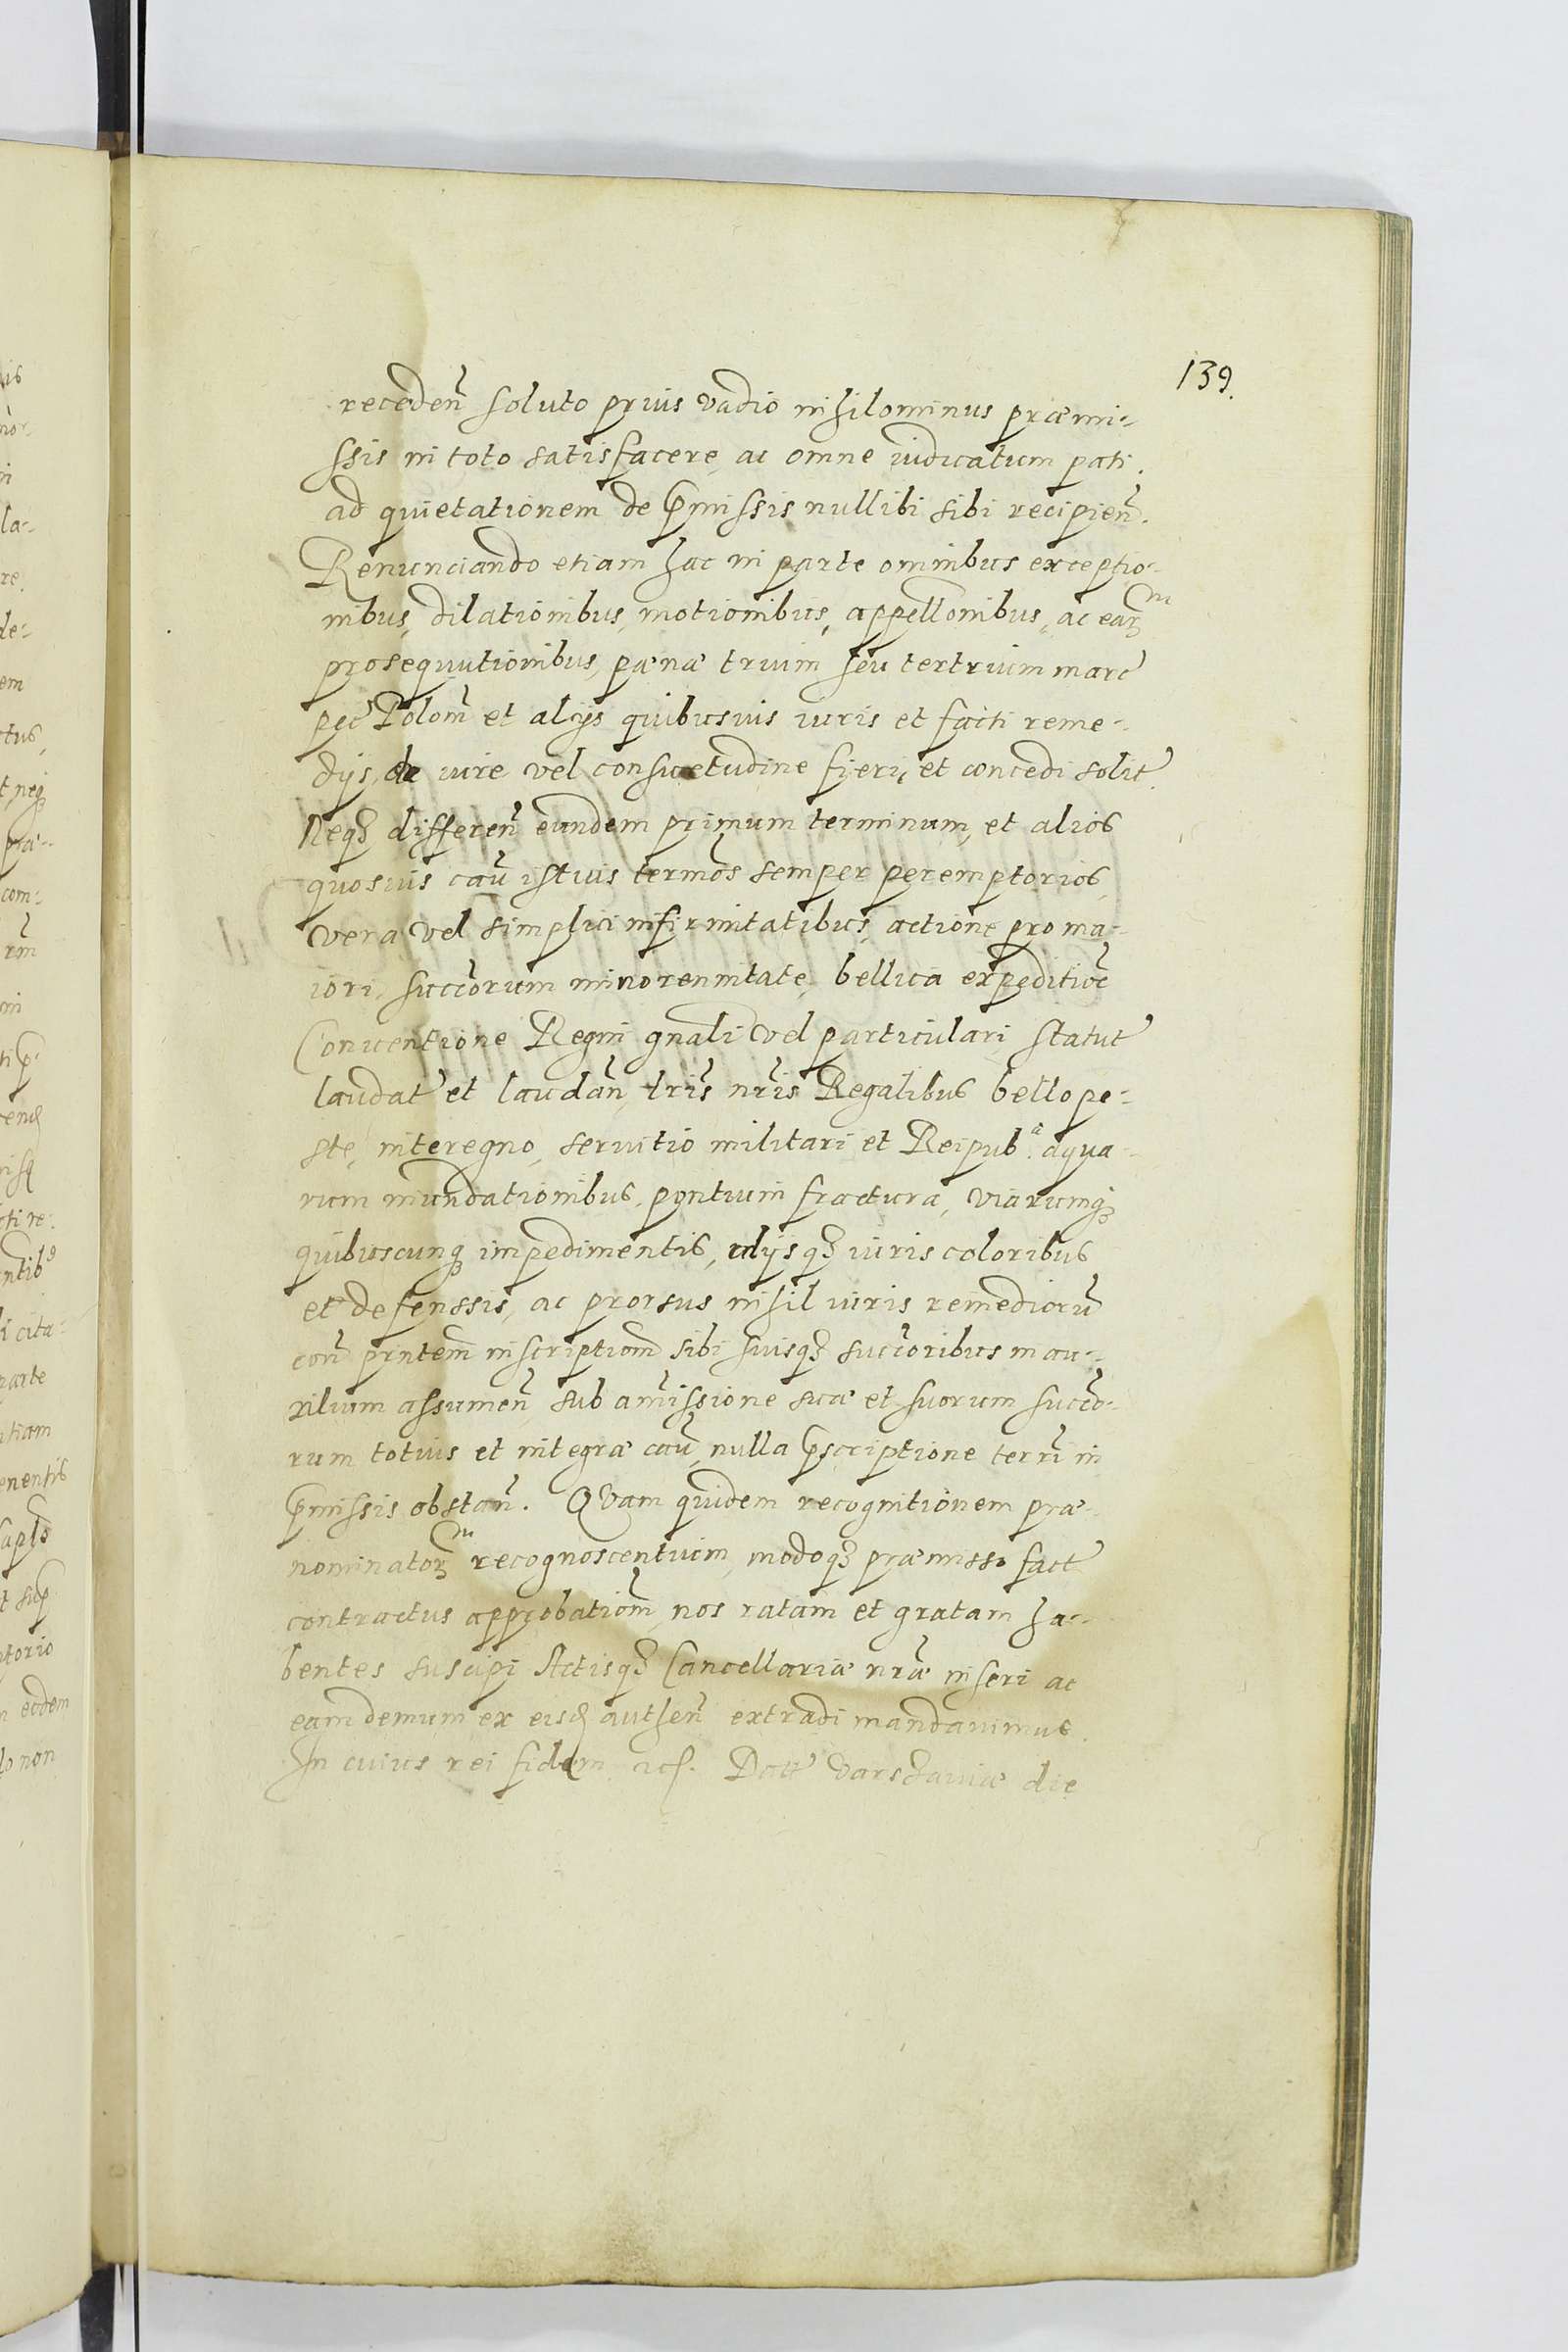 139.
receden̄ soluto prius vadio nihilominus præmi-
ssis in toto satisfacere, ac omne iudicatum pati.
ad quietationem de p̄missis nullibi sibi recipien̄.
Renunciando etiam hac in parte omnibus exceptio-
nibus, dilationibus, motionibus, appellonibus, ac earᵐ
prosequutionibus, pænæ trium seu tertrium marc
pec Polom̄ et alijs quibusuis iuris et facti reme-
dijs, de iure vel consuetudine fieri, et concedi solit.
Neqȝ differen̄ eundem primum terminum, et alios
quosuis caū istius term̄os semper peremptorios,
vera vel simplici infirmitatibus, actione pro ma-
iori, succ̄orum minorennitate, bellica expeditioē
Conuentione Regni gn̄ali vel particulari, statut
laudat et laudan̄, lr̄is nr̄is Regalibus bello pe-
ste, interegno, seruitio militari et Reipubᵃ. aqua-
rum inundationibus, pontium fractura, viarumqȝ
quibuscunqȝ impedimentis, alijsqȝ iuris coloribus
et defenssis, ac prorsus nihil iuris remediorū
con̄ prn̄tem inscriptiom̄ sibi suisqȝ succ̄oribus in au-
xilium assumen̄, sub amissione suæ et suorum succ̄o-
rum totius et integræ caū, nulla p̄scriptione terr̄i in
p̄missis obstan̄. Quam quidem recognitionem præ-
nominatorᵐ recognoscentium, modoqȝ præmisso fact
contractus approbatiom̄, nos ratam et gratam ha-
bentes suscipi Actisqȝ Cancellariæ nr̄æ inseri ac
eam demum ex eisd authen̄ extradi mandauimus.
In cuius rei fidem Datt Varschauiæ die